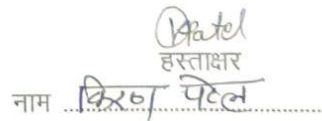 Patel
हस्ताक्षर
नाम किरण पटेल